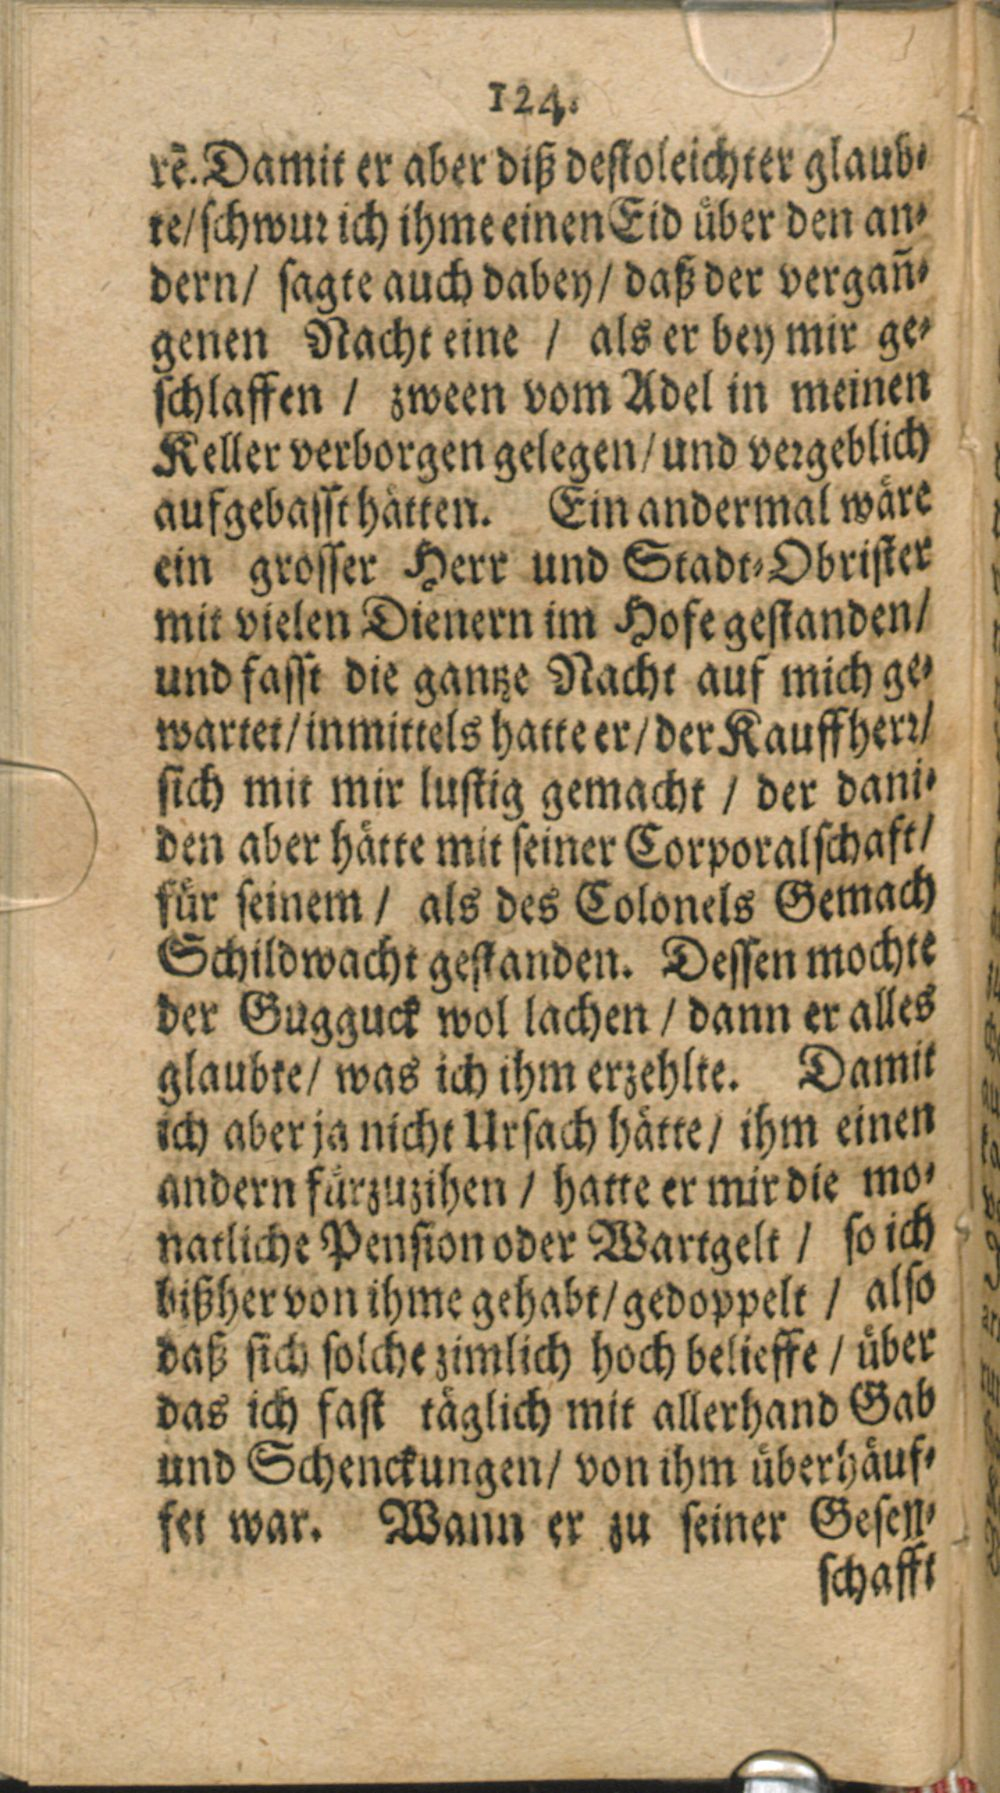 124.
rē. Damit er aber diß destoleichter glaub-
te/schwur ich ihme einen Eid über den an-
dern/ sagte auch dabey/ daß der vergañ-
genen Nacht eine / als er bey mir ge-
schlaffen / zween vom Adel in meinen
Keller verborgen gelegen/und vergeblich
aufgebasst hätten. Ein andermal wäre
ein grosser Herr und Stadt-Obrister
mit vielen Dienern im Hofe gestanden/
und fasst die gantze Nacht auf mich ge-
wartet/inmittels hatte er/der Kauffherr/
sich mit mir lustig gemacht / der dani-
den aber hätte mit seiner Corporalschaft/
für seinem / als des Colonels Gemach
Schildwacht gestanden. Dessen mochte
der Gugguck wol lachen / dann er alles
glaubte/ was ich ihm erzehlte. Damit
ich aber ja nicht Ursach hätte/ ihm einen
andern fürzuzihen / hatte er mir die mo-
natliche Pension oder Wartgelt / so ich
bißher von ihme gehabt/gedoppelt / also
daß sich solche zimlich hoch belieffe / über
das ich fast täglich mit allerhand Gab
und Schenckungen/ von ihm überhäuf-
fet war. Wann er zu seiner Gesell-
schafft